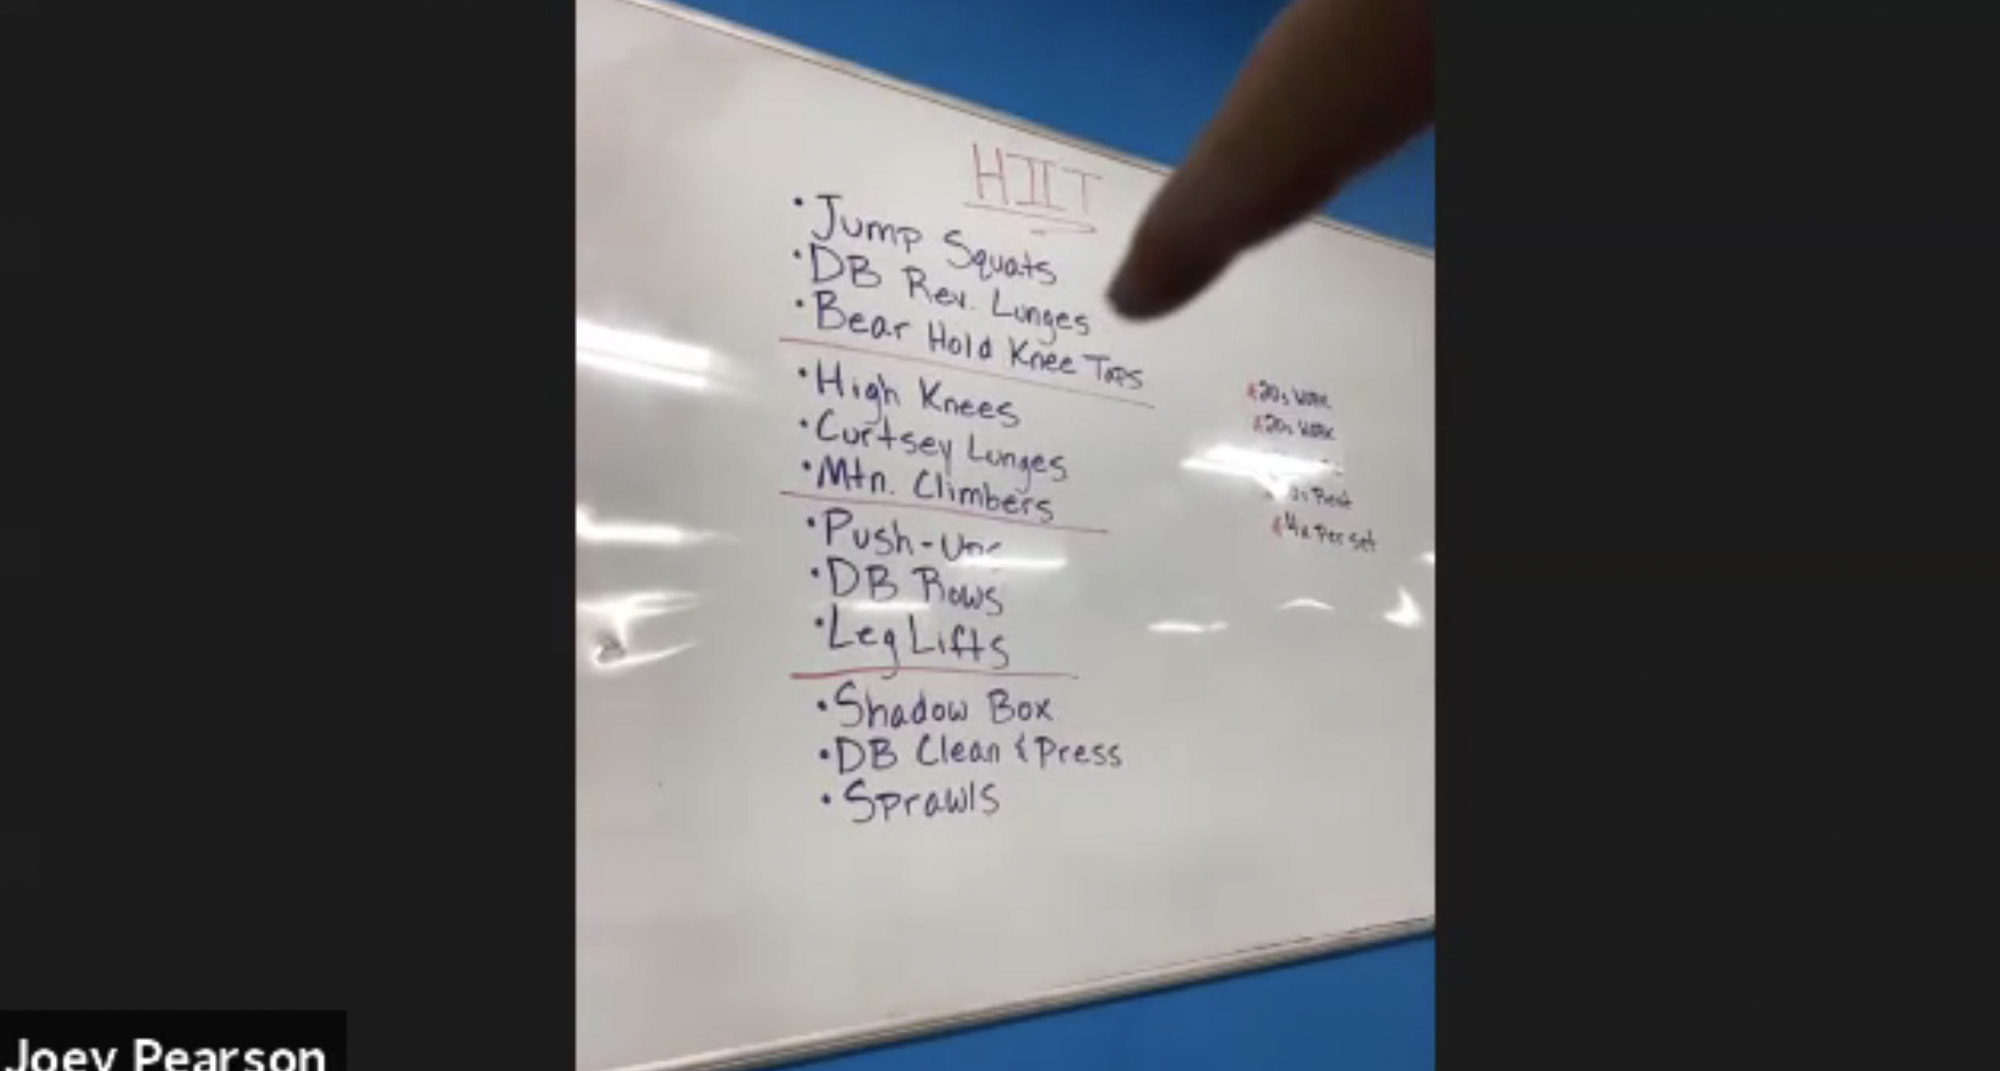 HIIT
• Jump Squats
• DB Rev. Lunges
• Bear Hold Knee Taps
• High Knees
• Curtsey Lunges
• Mtn. Climbers
• Push-Ups
• DB Rows
• Leg Lifts
• Shadow Box
• DB Clean & Press
• Sprawls
*20s Work
*20s Work
Rest
*4x Per set
Joey Pearson